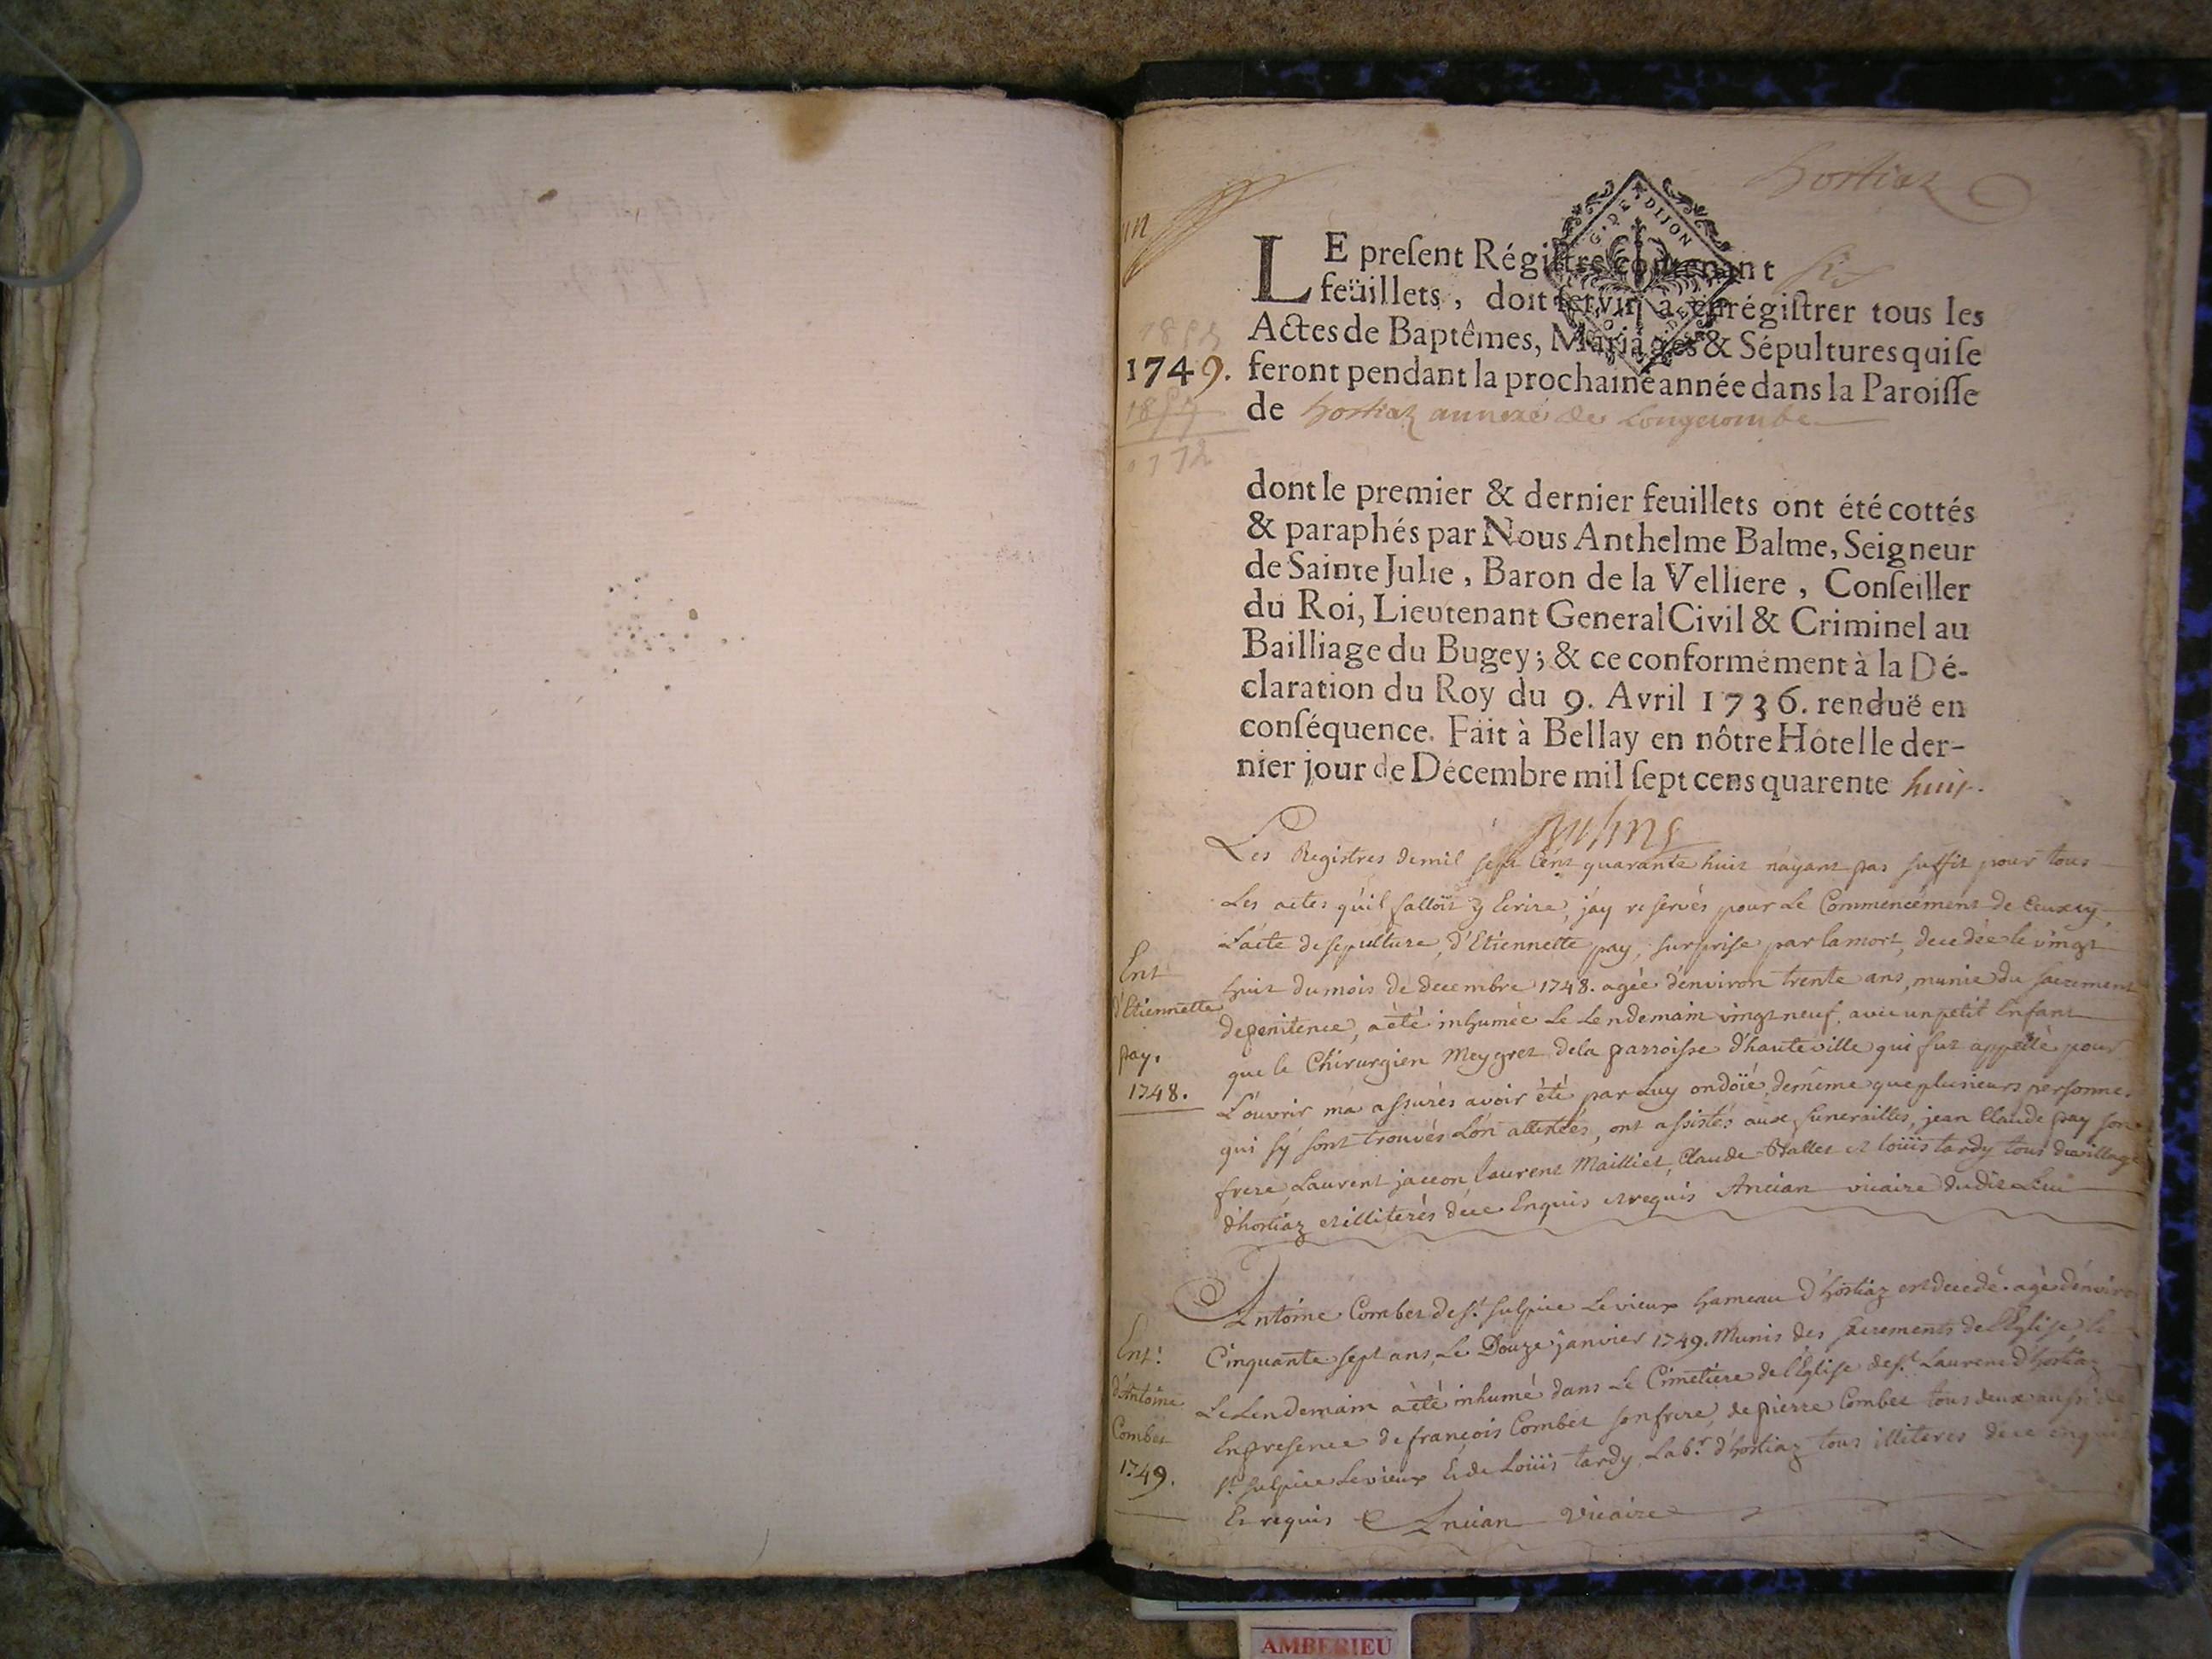 hortiaz
un
G. DE DIJON
LE preſent Régiſtre contenant six
feüillets, doit ſervir à enrégiſtrer tous les
Actes de Baptêmes, Mariages & Sépultures qui ſe
1749. feront pendant la prochaine année dans la Paroiſſe
de hortiaz annexe de Longecombe
1772
dont le premier & dernier feuillets ont été cottés
& paraphés par Nous Anthelme Balme, Seigneur
de Sainte Julie, Baron de la Velliere, Conſeiller
du Roi, Lieutenant General Civil & Criminel au
Bailliage du Bugey; & ce conformément à la Dé-
claration du Roy du 9. Avril 1736. renduë en
conſéquence. Fait à Bellay en nôtre Hôtel le der-
nier jour de Décembre mil ſept cens quarente huit.
Les Registres de mil sept cent quarante huit n'ayant pas suffit pour tous
Les actes qu'il falloit y Ecrire, j'ay reservés pour Le Commencement de Ceuxcy,
L'acte de sepulture, d'Etiennette pay, surprise par la mort, decedée le vingt
huit du mois de decembre 1748. agée d'environ trente ans, munie du sacrement
de penitence, a été inhumée Le Lendemain vingt neuf, avec un petit Enfant
que le Chirurgien Meygret de la parroisse d'hauteville qui fut appellé pour
L'ouvrir m'a assurés avoir été par Luy ondoïé, de même que plusieurs personnes
qui s'y sont trouvés L'on attestées, ont assistés aux funerailles, jean Claude pay son
frere, Laurent jaccon laurent Mailliet, Claude Ballet et loüis tardy tous du village
d'hortiaz et illiterés de ce Enquis et requis Ancian vicaire du dit Lieu
Ent
d'Etiennette
pay.
1748.
Antoine Combet de St. Sulpice Le vieux hameau d'hortiaz est decedé. agé d'environ
Cinquante sept ans, Le Douze janvier 1749. Munis des sacrements de L'Eglise
Le Lendemain a été inhumé dans Le Cimetiere de l'Eglise de St. Laurent d'hortiaz
En presence de françois Combet son frere, de pierre Combet tous deux aussi de
St. Sulpice Le vieux Et de Loüis tardy Labr. d'hortiaz tous illiteres de ce enquis
Et requis Ancian vicaire
Ent.
d'Antoine
Combet
1749.
AMBERIEU